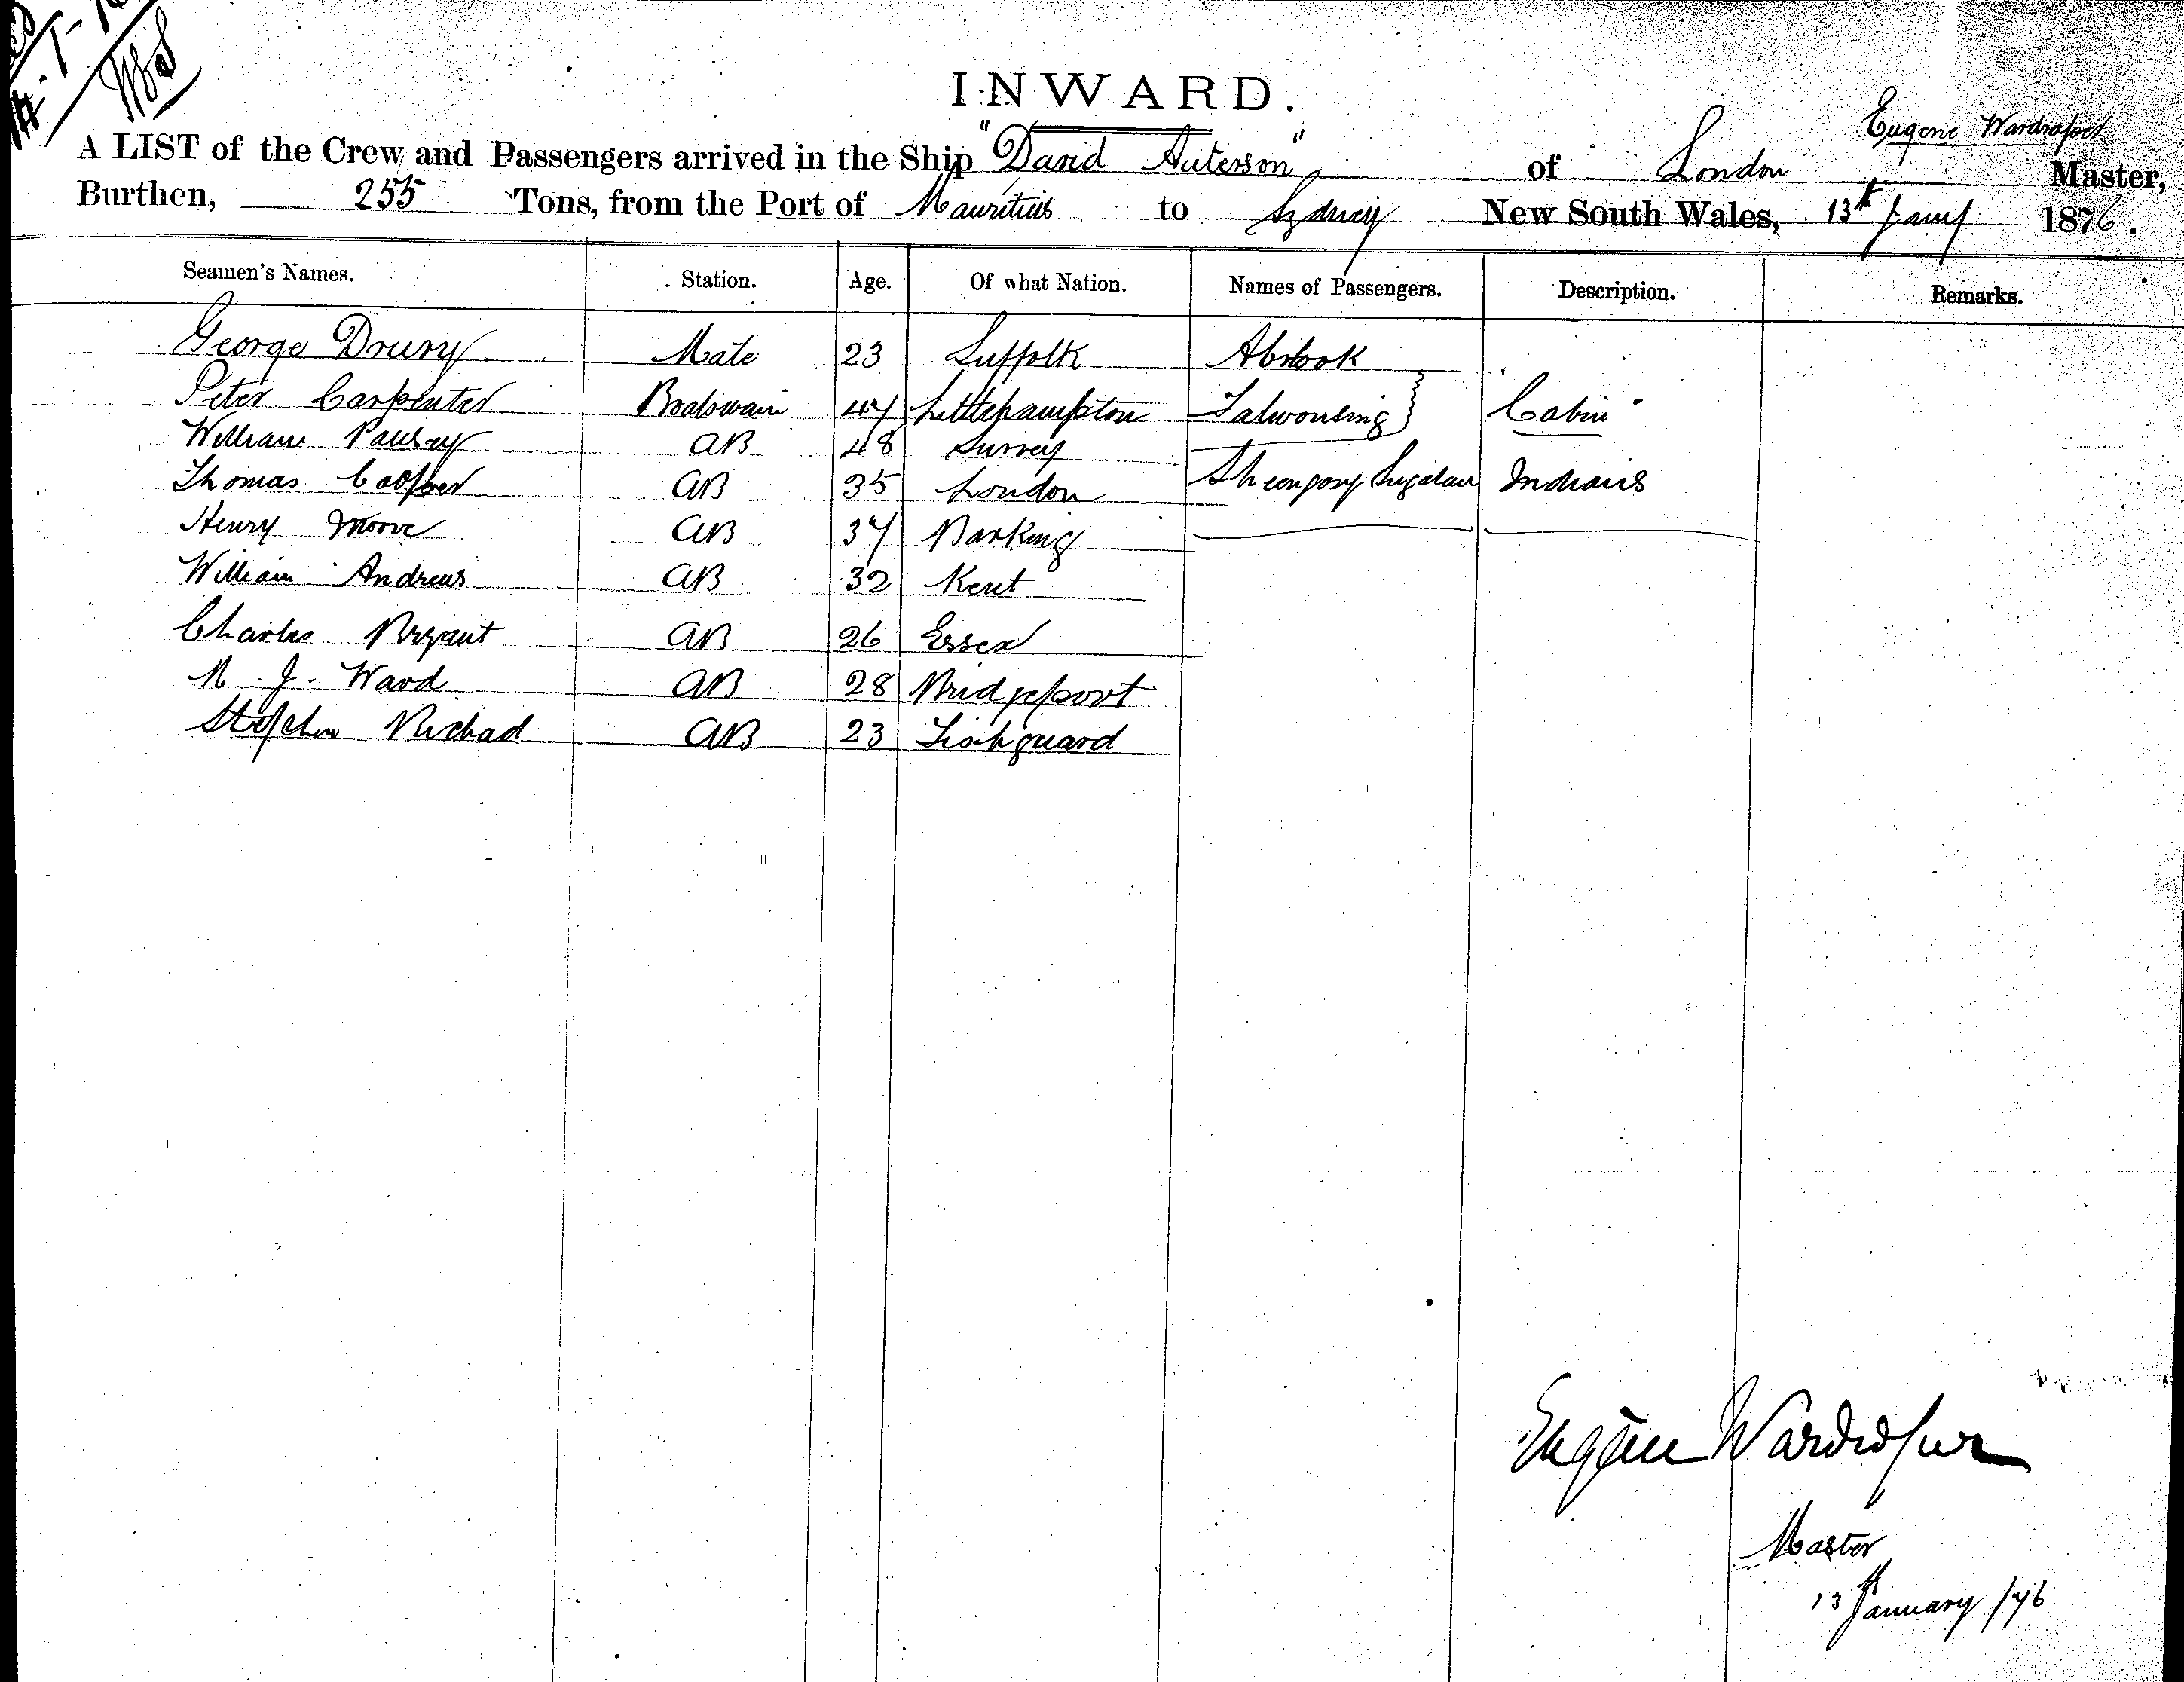 INWARD.
A LIST of the Crew and Passengers arrived in the Ship "David Auterson" of London Eugene Wardroper Master,
Burthen, 255 Tons, from the Port of Mauritius to Sydney New South Wales, 13th Jany 1876.
Seamen's Names. Station. Age. Of what Nation. Names of Passengers. Description. Remarks.
George Drury Mate 23 Suffolk
Peter Carpenter Boatswain 47 Littlehampton Cabin
William AB 48 Surrey
Thomas Cooper AB 35 London Indians
Henry Moore AB 37 Barking
William Andrews AB 32 Kent
Charles Bryant AB 26 Essex
M. J. Ward AB 28 Bridgeport
Stephen Richad AB 23 Fishguard
Eugène Wardroper
Master
13th January /76